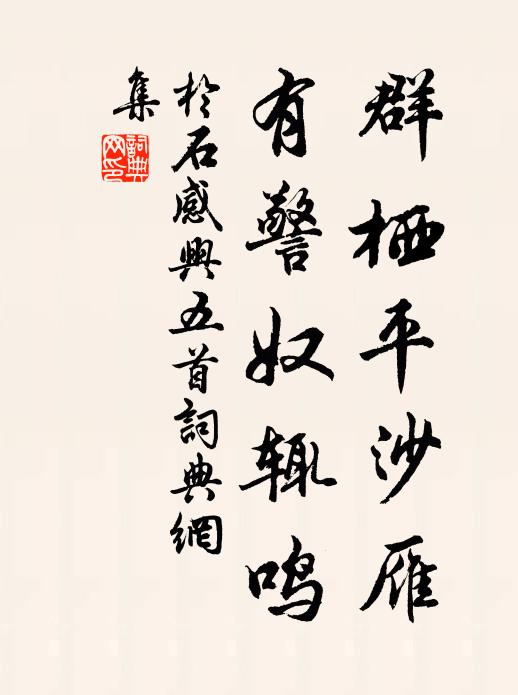 群栖平沙雁
有警奴辄鸣
於石感興五首詞典網
集
詞典
网印